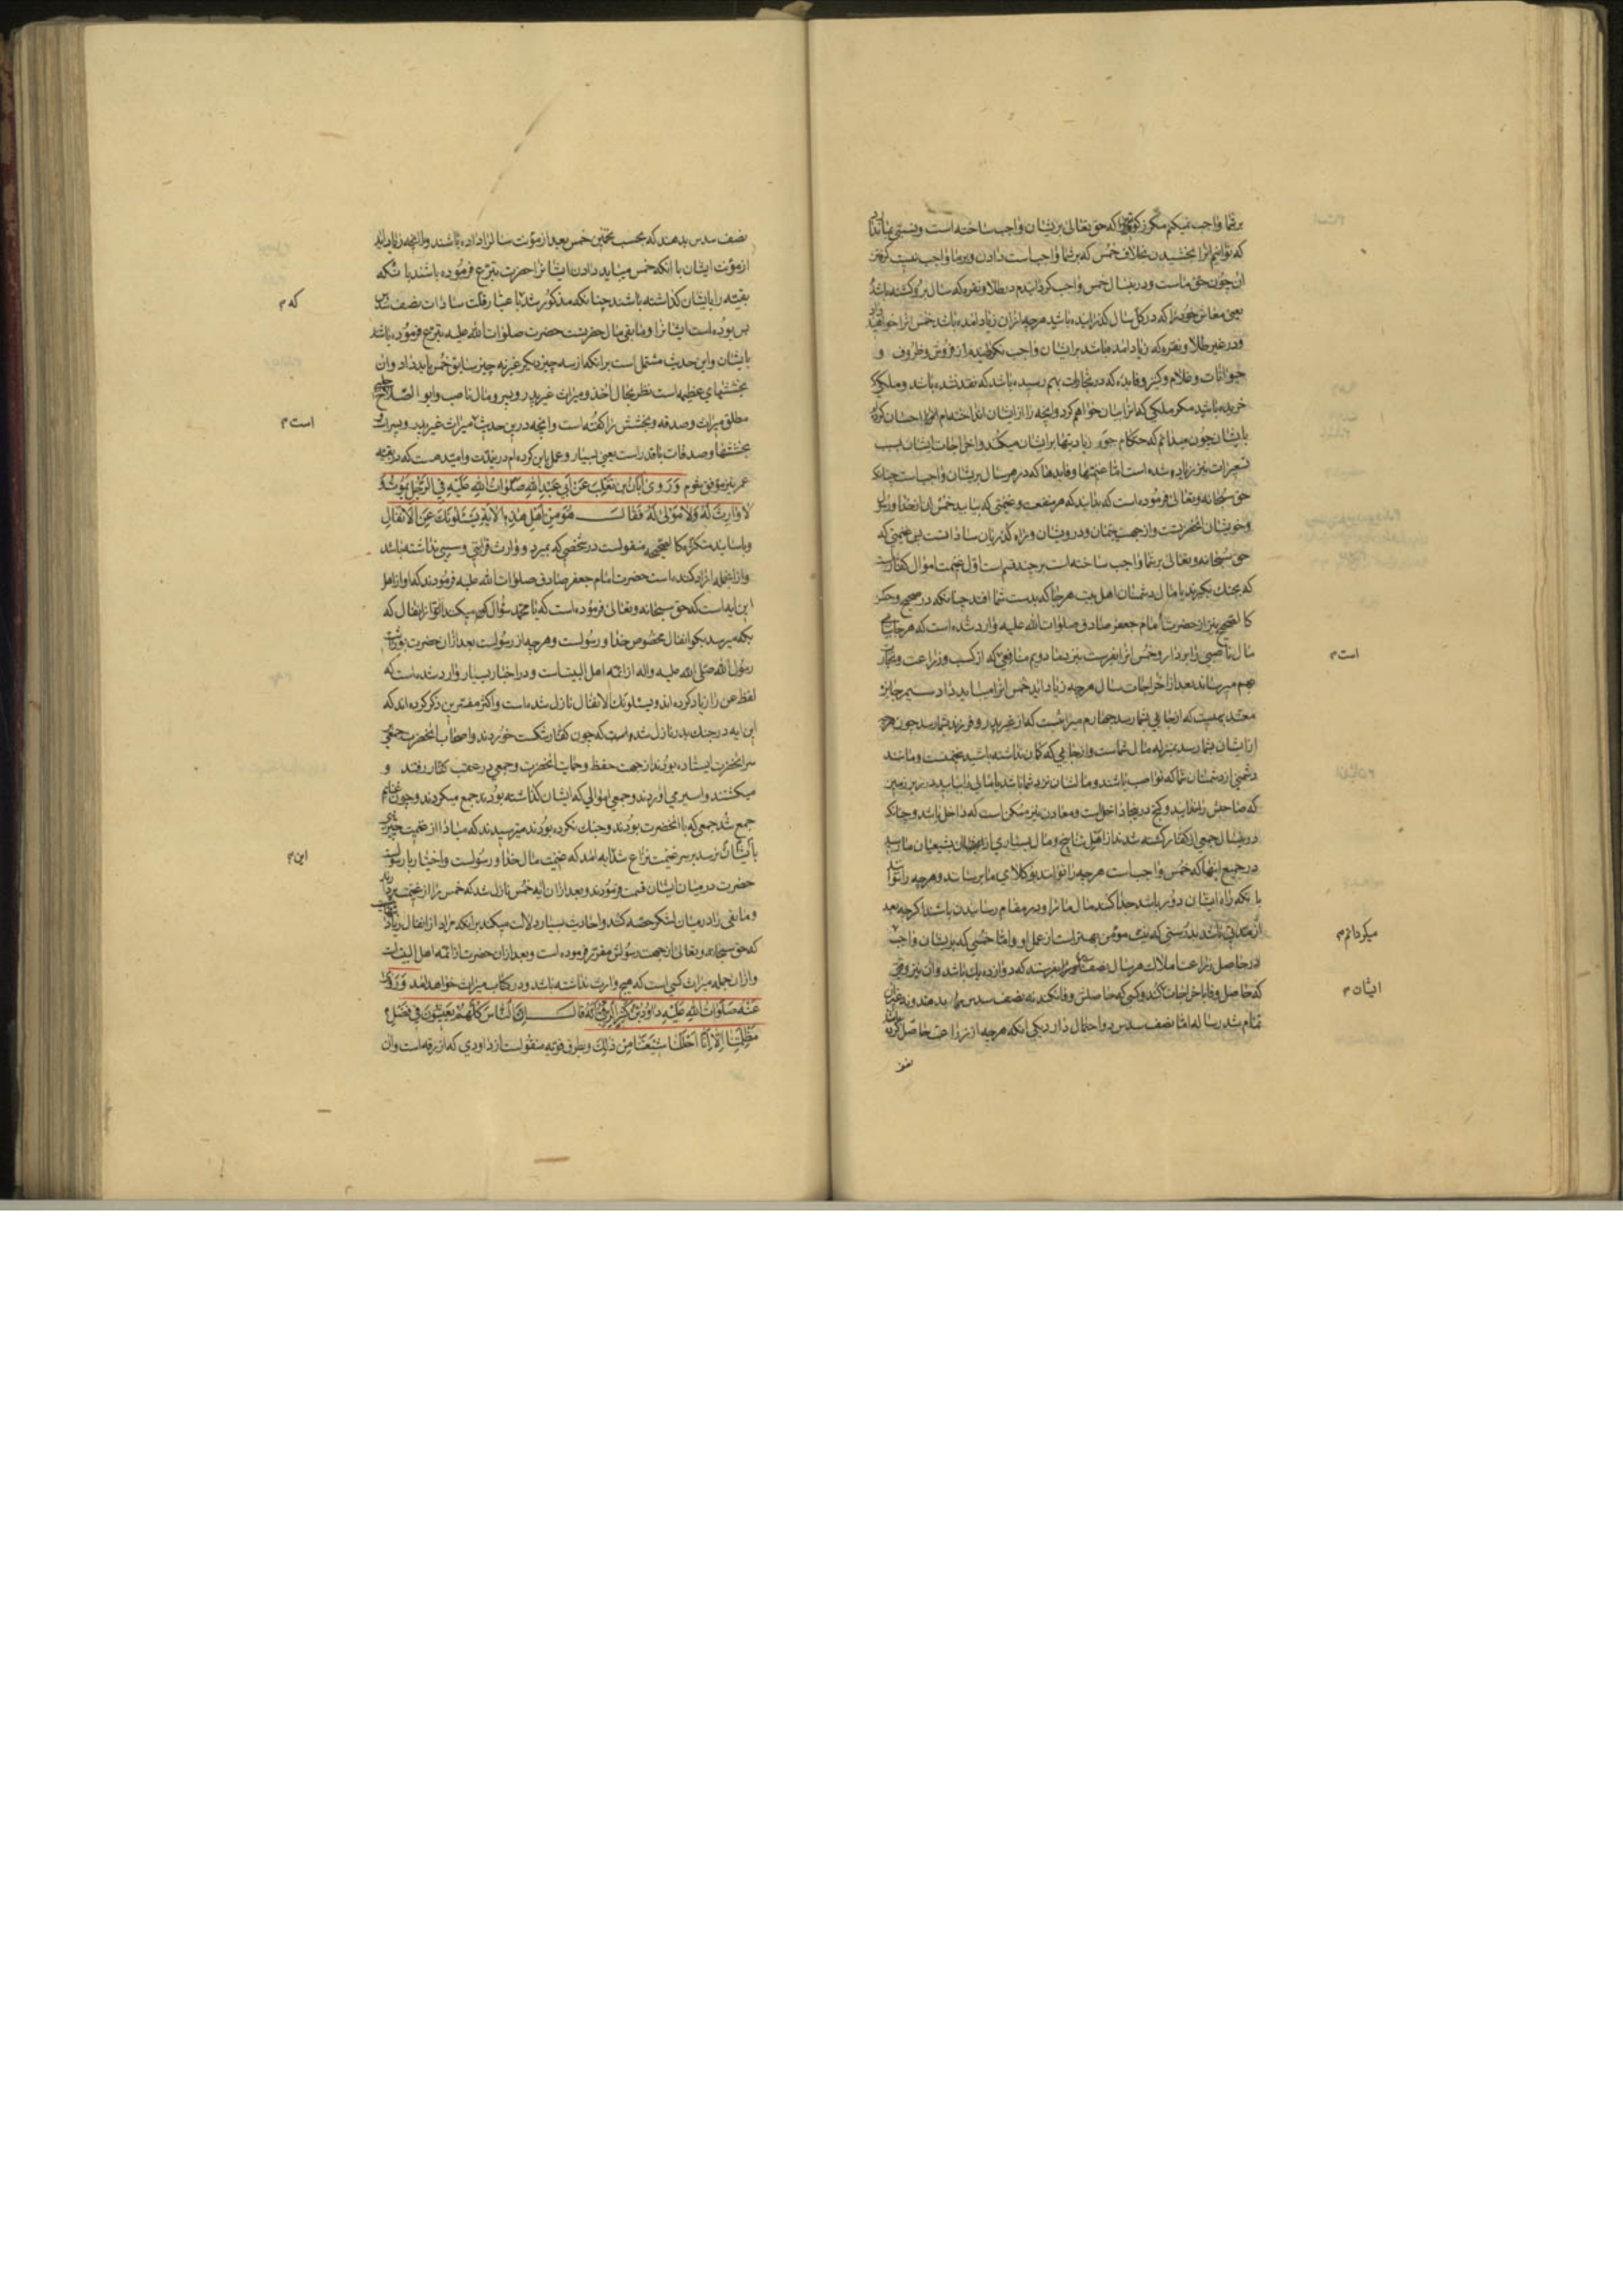 بر شما واجب نمیکنم مکر زکوتی را که حق تعالی بر ایشان واجب ساخته است
که توانیم انرا بخشیدن بخلاف خمس که بر شما واجب است دادن و بر ما واجب نیست کرفتن
ان چون حق ماست و در ینسال خمس واجب کردانیدم در طلا و نقره که سال بر او کذشته باشد
یعنی معاش خود را که در کل سال کذرانیده باشید هرچه از ان زیاد امده باشد خمس انرا خواهید داد
و در غیر طلا و نقره که زیاد امده باشد بر ایشان واجب نکردانیدم از فروش و ظروف و
حیوانات و غلام و کنیز و فایده که در تجارات بهم رسیده باشد که نقد نشده باشد و ملکی که
خریده باشید مکر ملکی که از برای ایشان خواهم کرد و انچه را از ایشان انداخته ام
با ایشان چون میدانم که حکام جور زیادتیها بر ایشان میکنند و اخراجات ایشان بسبب
نیز زیاده شده است اما غنیمتها و فایدها که در هر سال بر ایشان واجب است چنانکه
حق سبحانه و تعالی فرموده است که بدانید که هر منفعت و غنیمتی که بیابید خمس ان از خدا و رسول
و خویشان انحضرتست و از جهت یتیمان و درویشان و راه کذریان سادات است پس غنیمتی که
حق سبحانه و تعالی بر شما واجب ساخته است بر چند قسم است اول غنیمت اموال کفار است
که بجنك بکیرند یا مال دشمنان اهل بیت هر جا که بدست شما افتد چنانکه در صحیح و حسن
کالصحیح نیز از حضرت امام جعفر صادق صلوات الله علیه وارد شده است که هر جا بیابی
مال ناصبی را بردار و خمس انرا بفرست بنزد ما دویم منافعی که از کسب و زراعت و تجارت
است م
بهم میرساند بعد از اخراجات سال هر چه زیاد اید خمس انرا میباید داد سیم جایزه
معتد بهیست که از جایی بشما رسد چهارم میراثست که از غیر پدر و فرزند بشما رسد چون هرچه
از ایشان بشما رسد بمنزله مال شماست و از جایی که کمان نداشته باشید غنیمتست و مانند
دشمنی از دشمنان شما که نواصب باشند و مالشان نزد شما باشد یا مالی را بیابید در زیر زمین
که صاحبش را ندانید و کنج در ینجا داخل است و معادن نیز ممکن است که داخل باشد و چنانکه
در ینسال جمعی از کفار کشته شدند از اهل و مال بسیاری از ایشان بشیعیان ما رسید
در جمیع اینها که خمس واجب است هر چه را توانند بوکلای ما برسانند و هر چه را نتوانند
با نکه راه ایشان دور باشد جدا کنند مال ما را و در مقام رسانیدن باشند اکرچه بعد
از مدتی باشد بدرستی که نیت مؤمن بهتر است از عمل او و اما خمسی که بر ایشان واجب
میکردانم م
در حاصل زراعت املاك هر سال نصف سدس را بفرستند که دوازده یك باشد و ان نیز وقتی
که حاصل وفا باخراجات کند و کسی که حاصلش وفا نکند نه نصف سدس بر او و نه غیر ان
ایشان م
تمام شد رساله اما نصف سدس دو احتمال دارد یکی انکه هر چه از زراعت حاصل کرده باشند
نصف
نصف سدس بدهند که بحسب تخمین خمس بعد از مؤنت سال زاد داده باشند و الا انچه زیاد اید
از مؤنت ایشان با انکه خمس میباید دادن ایشانرا حضرت تبرع فرموده باشند یا انکه
بقیه را بایشان کذاشته باشند چنانکه مذکور شد باعتبار قلت سادات نصف سدس
که م
بس بوده است ایشانرا و ما بقی مال حضرتست حضرت صلوات الله علیه تبرع فرموده باشد
بایشان و این حدیث مشتمل است بر انکه از سه چیز دیکر غیر نه چیز سابق خمس باید داد و ان
بخششهای عظیمه است نظر بحال اخذ و میراث غیر پدر و پسر و مال ناصب و ابو الصلاح حلبی
مطلق میراث و صدقه و بخشش را کفته است و انچه در ین حدیث میراث غیر پدر و پسر است
است م
بخششها و صدقات با قدر است یعنی بسیار و عمل باین کرده ام در ینمدت و امید هست که در بقیه
عمر نیز موفق شوم وَرَوی اَبانُ بن تَغلِبَ عَن اَبی عَبدِ اللهِ صَلَواتُ اللهِ عَلَیهِ فی الرَّجُلِ یَموتُ وَ
لا وارِثَ لَهُ وَلا مَولی لَهُ فَقالَ هُوَ مِن اَهلِ هذِهِ الایَةِ یَسئَلونَكَ عَنِ الاَنفالِ
و باسانید متکثره کالصحیحه منقولست در شخصی که بمیرد و وارث قرابتی و سببی نداشته باشد
و از انجمله ازاد کننده است حضرت امام جعفر صادق صلوات الله علیه فرمودند که او از اهل
این ایه است که حق سبحانه و تعالی فرموده است که یا محمد سؤال میکنند از تو از انفال که
بکه میرسد بکو انفال مخصوص خدا و رسولست و هر چه از رسولست بعد از ان حضرت
رسول الله صلی الله علیه و اله از ائمه اهل البیت است و در اخبار بسیار وارد شده است که
لفظ عن را زیاد کرده اند و یسئلونك الانفال نازل شده است و اکثر مفسرین ذکر کرده اند که
این ایه در جنك بدر نازل شده است که چون کفار شکست خوردند و اصحاب انحضرت جمعی
بر سر انحضرت ایستاده بودند از جهت حفظ و حمایت انحضرت و جمعی در عقب کفار رفتند و
میکشتند و اسیر می اوردند و جمعی اموالی که ایشان کذاشته بودند جمع میکردند و چون غنایم
جمع شد جمعی که با انحضرت بودند و جنك نکرده بودند میترسیدند که مبادا از غنیمت چیزی
بایشان نرسد بر سر غنیمت نزاع شد ایه امد که غنیمت مال خدا و رسولست و اختیار با رسولست
این م
حضرت در میان ایشان قسمت فرمودند و بعد از ان ایه خمس نازل شد که خمس را از غنیمت بردارند
و ما بقی را در میان لشکر حصه کنند و احادیث بسیار دلالت میکند بر انکه مراد از انفال
که حق سبحانه و تعالی از جهت رسولش مقرر فرموده است و بعد از ان حضرت از ائمه اهل البیت است
و از ان جمله میراث کسی است که هیچ وارث نداشته باشد و در کتاب میراث خواهد امد وَرَوی
عَنهُ صَلَواتُ اللهِ عَلَیهِ داوُدُ بنُ کَثیرٍ الرَّقّیُّ اَنَّهُ قالَ اِنَّ النّاسَ کُلَّهُم یَعیشُونَ فی فَضلِ
مَظلِمَتِنا اِلّا اَنّا اَحلَلنا شیعَتَنا مِن ذلِكَ و بطرق قویه منقولست از داودی که از رقه است و ان